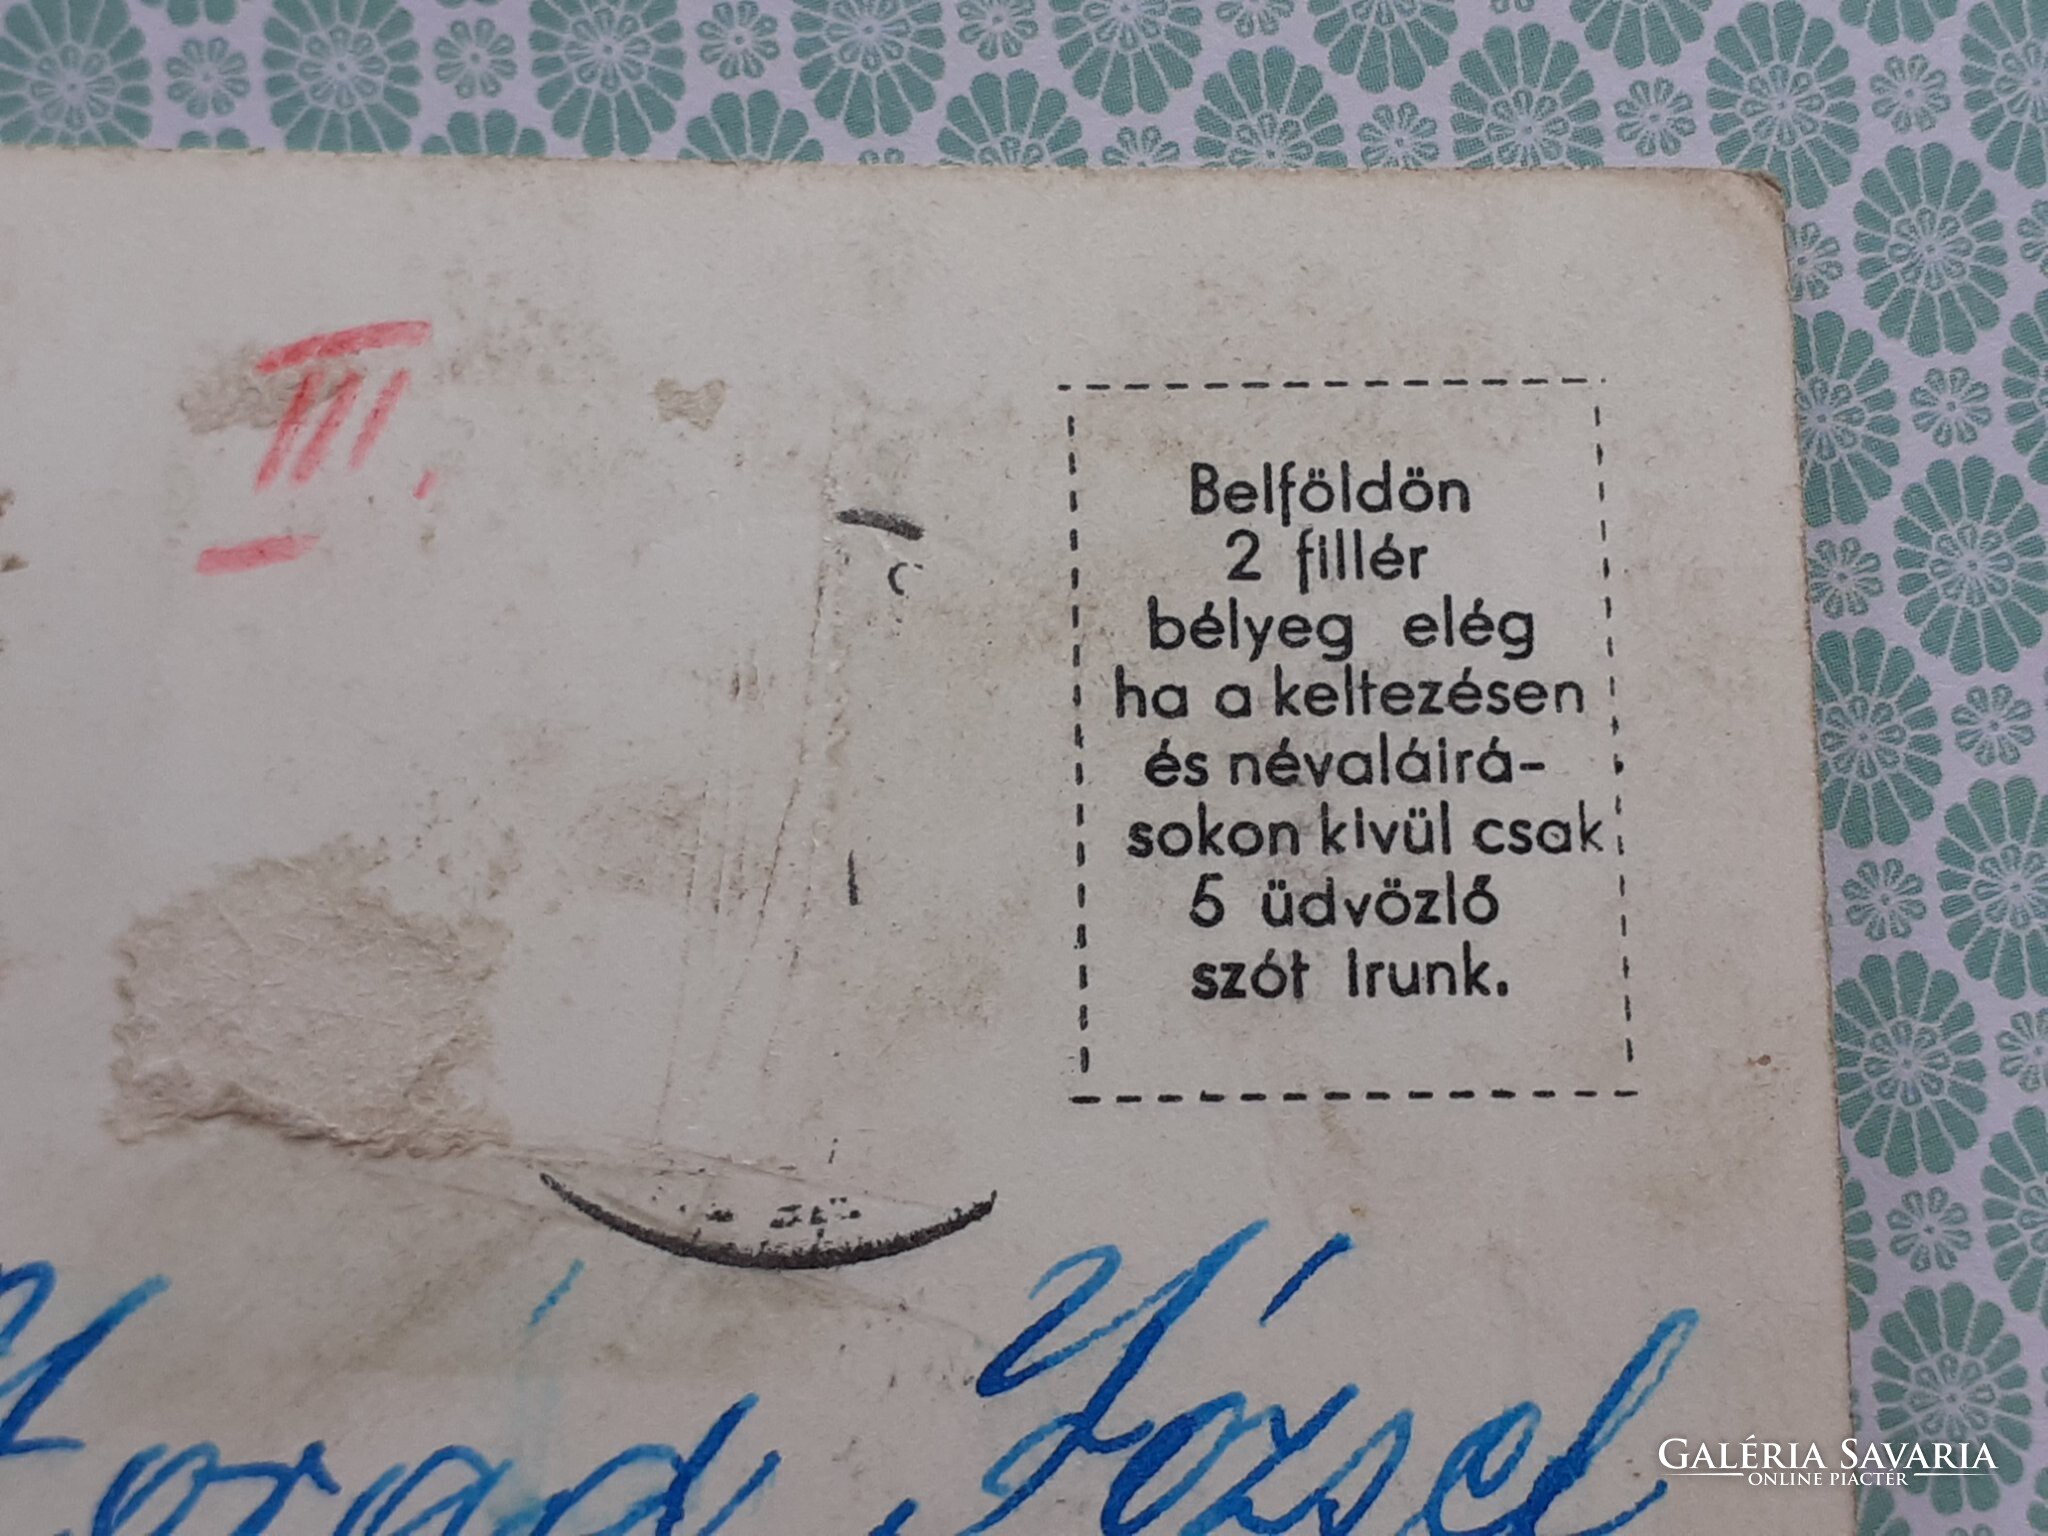 III.
Belföldön
2 fillér
bélyeg elég
ha a keltezésen
és névaláirá-
sokon kivül csak
5 üdvözlő
szót irunk.
József
GALÉRIA SAVARIA
ONLINE PIACTÉR